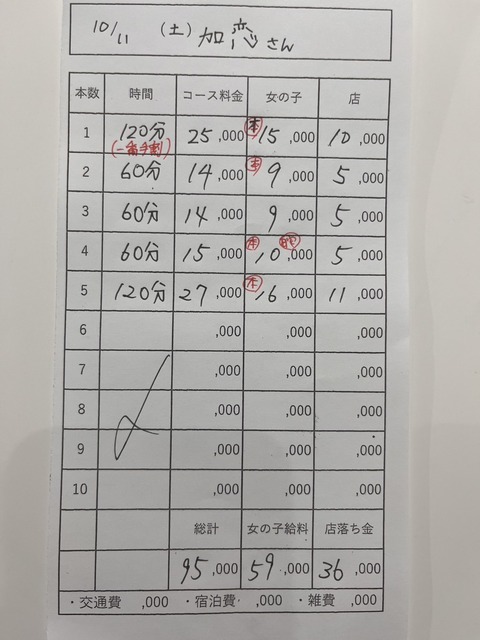 10/11 (土) 加恋さん
本数 時間 コース料金 女の子 店
1 120分 25,000 本 15,000 10,000
(一番手割)
2 60分 14,000 本 9,000 5,000
3 60分 14,000 9,000 5,000
4 60分 15,000 本 10,000 5,000
5 120分 27,000 本 16,000 11,000
6 ,000 ,000 ,000
7 ,000 ,000 ,000
8 ,000 ,000 ,000
9 ,000 ,000 ,000
10 ,000 ,000 ,000
総計 女の子給料 店落ち金
95,000 59,000 36,000
・交通費 ,000 ・宿泊費 ,000 ・雑費 ,000